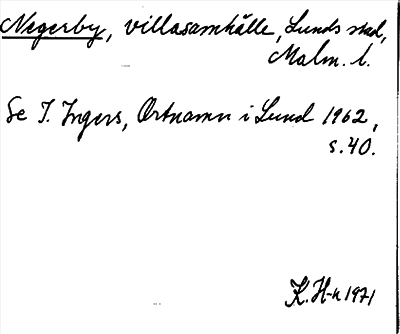 Negerby, villasamhälle, Lunds stad,
Malm. l.
Se I. Ingers, Ortnamn i Lund 1962,
s. 40.
K. H-n 1971